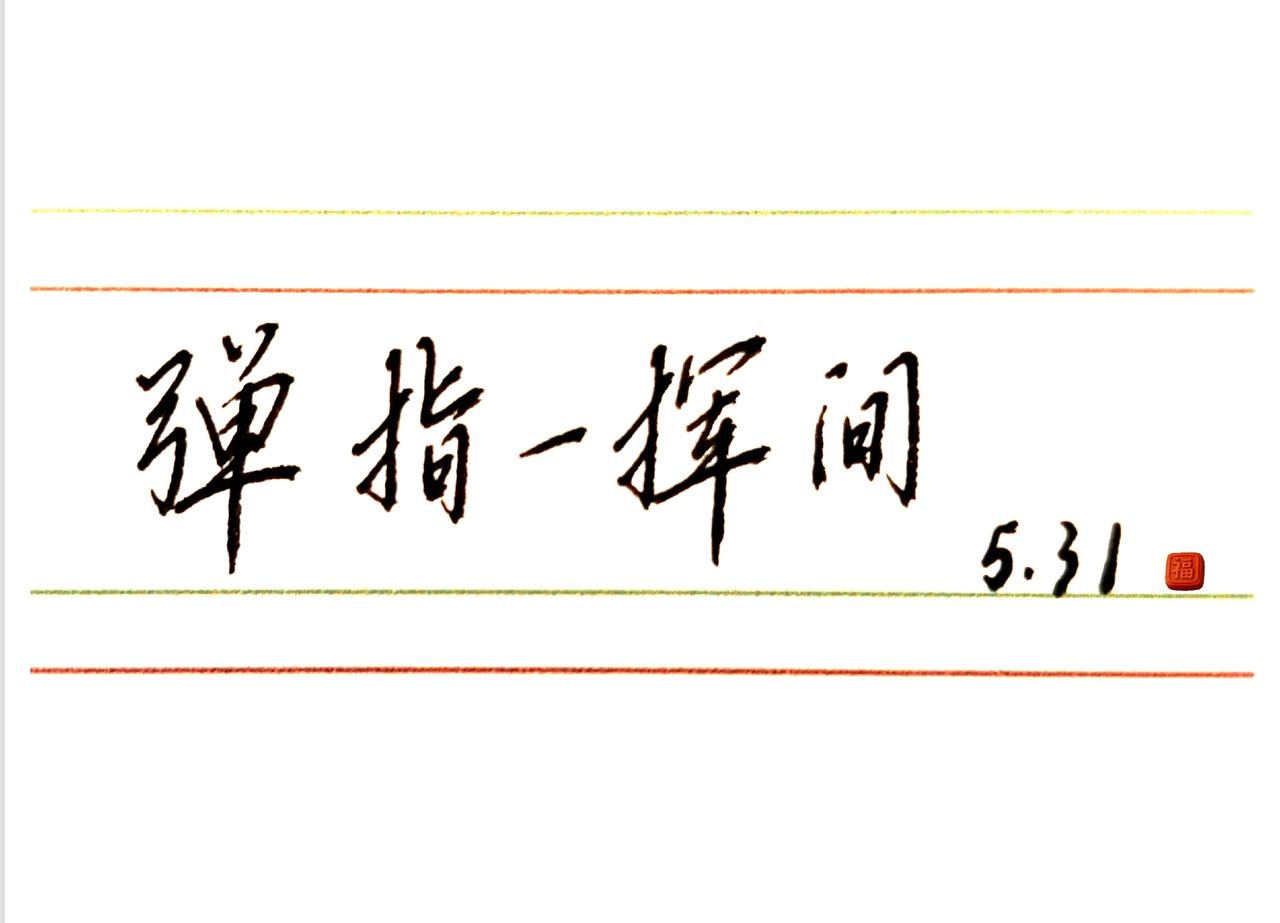 弹指一挥间
5.31
福